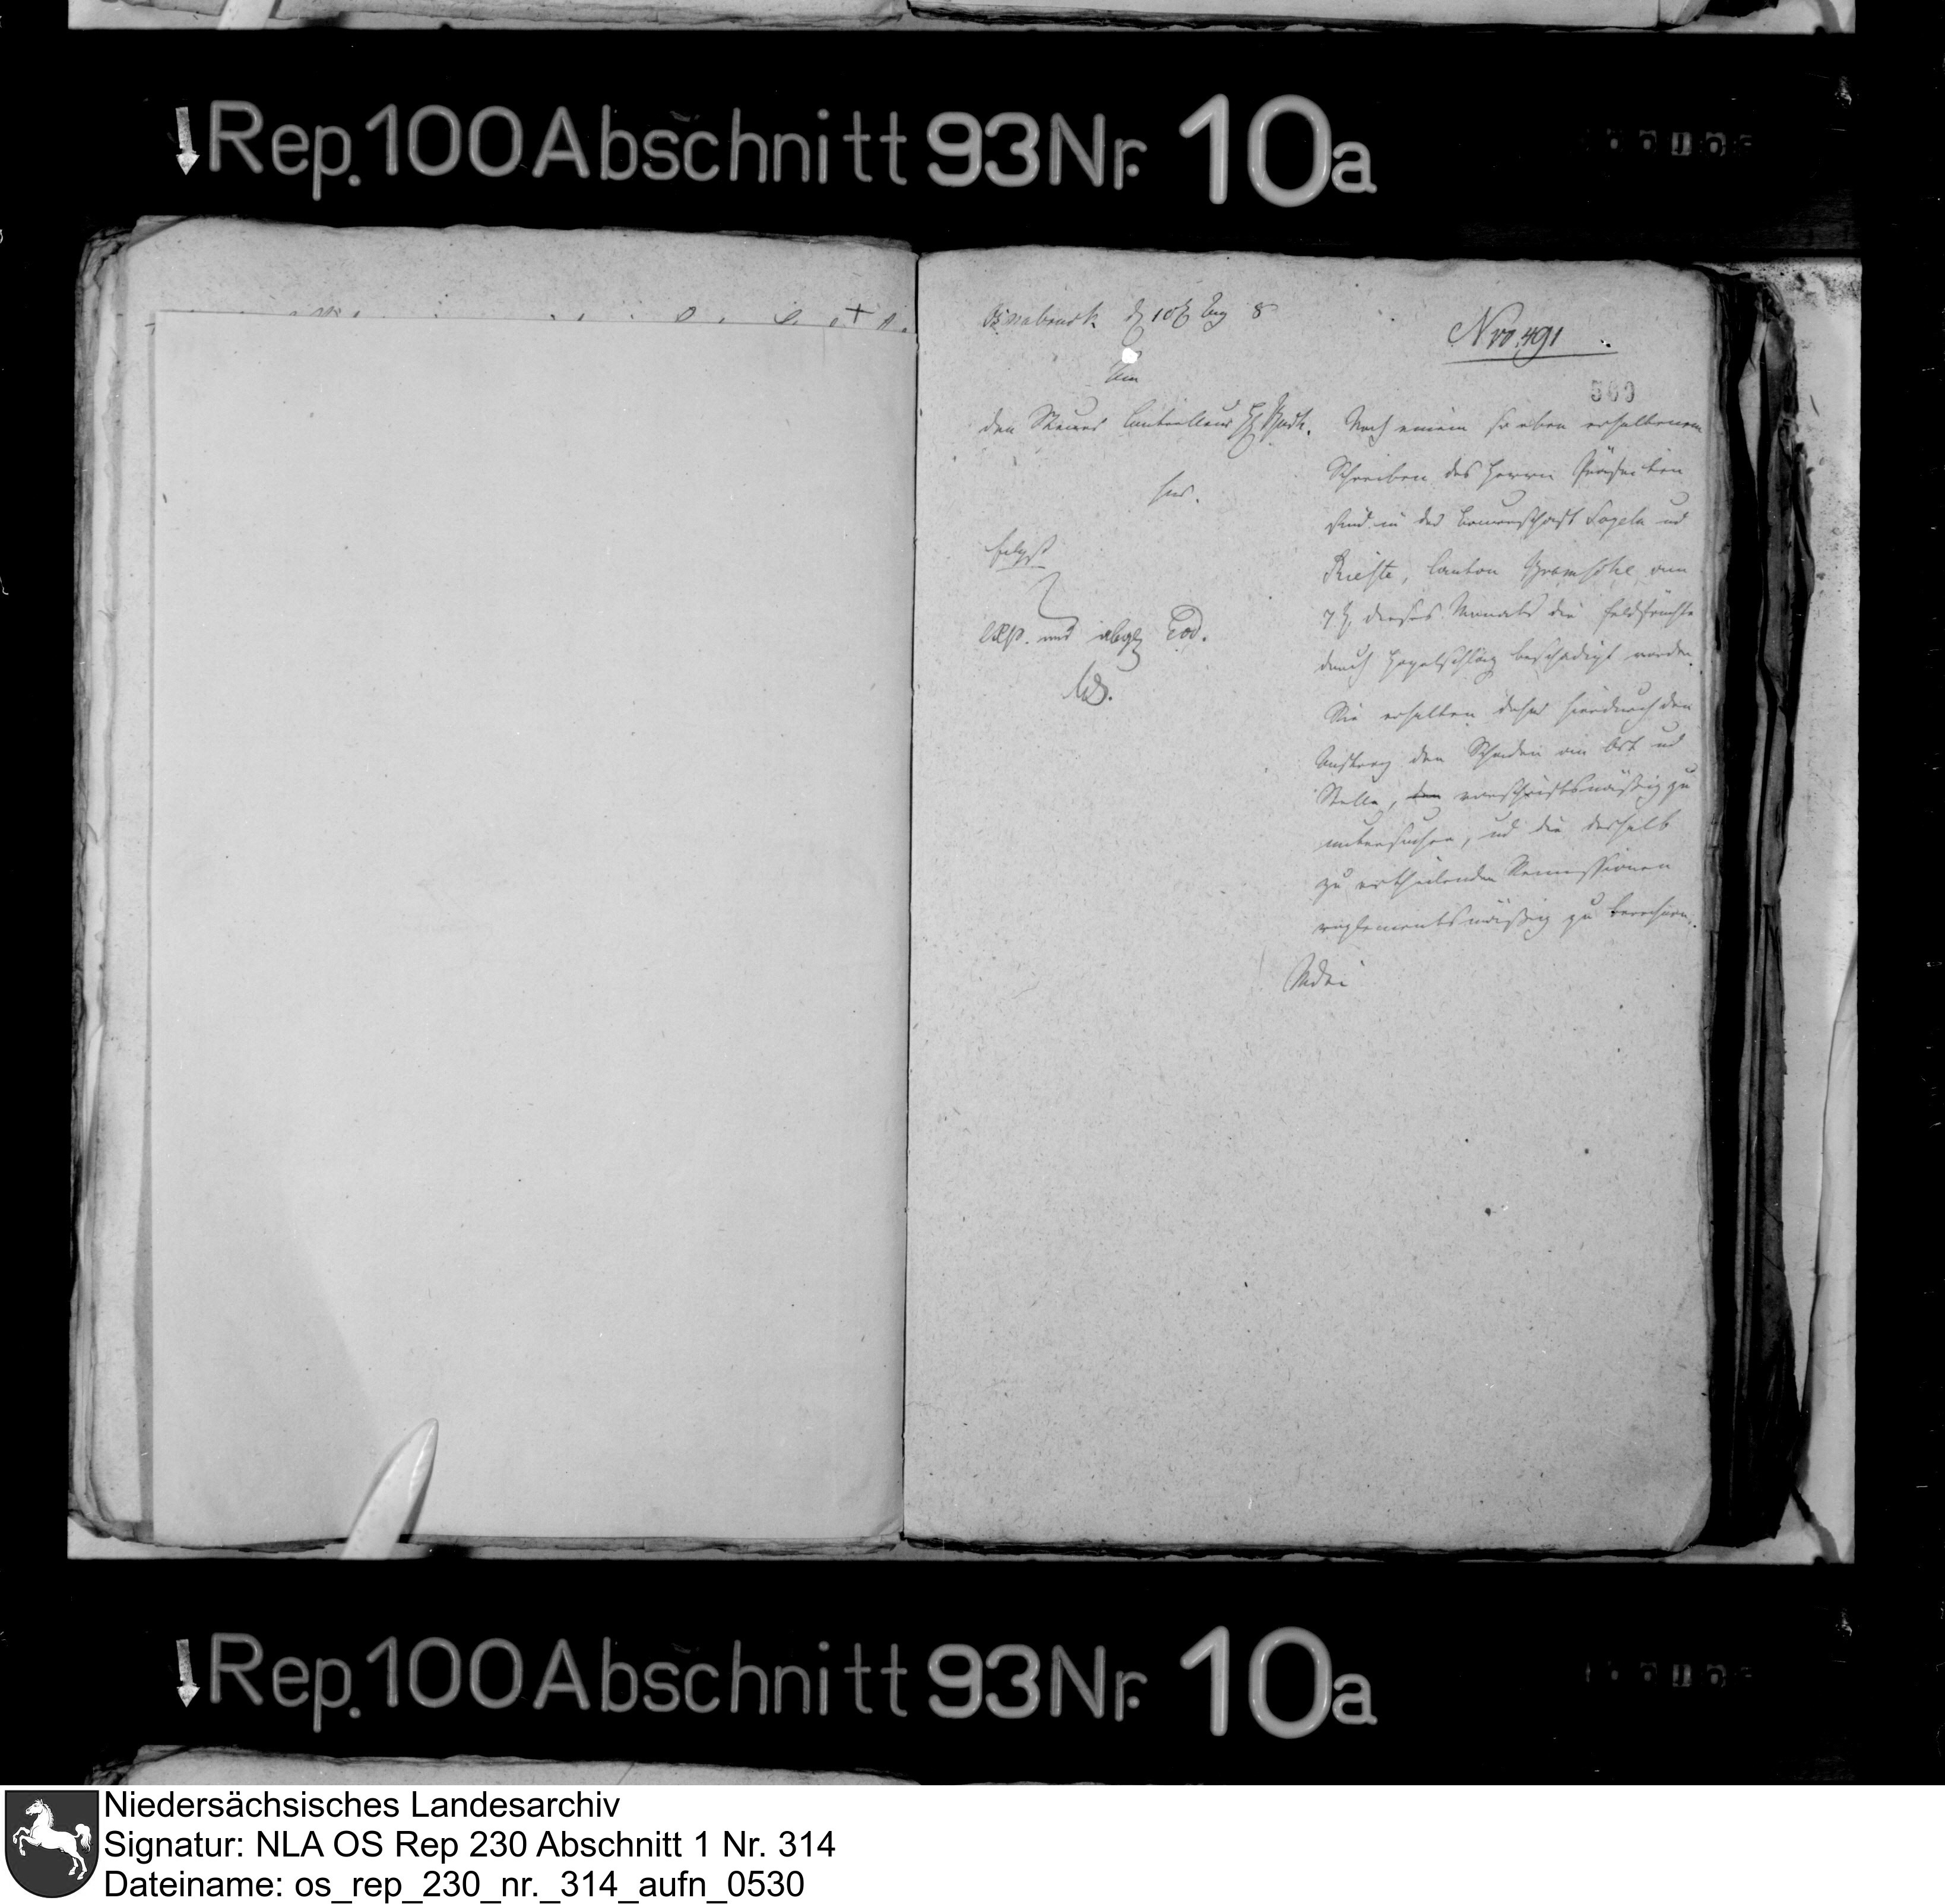 Rep. 100 Abschnitt 93 Nr. 10a
Osnabruck d 10t Aug 8
Nro. 491
An
560
den Steuer Controlleur H
hier.
Nach einem so eben erhaltenen
Schreiben des Herrn Praefecten
sind in der Bauerschaft Sögeln und
Rieste, Canton Bramsche am
7t. dieses Monats die Feldfrüchte
durch Hagelschlag beschädigt worden.
Sie erhalten daher hierdurch den
Auftrag den Schaden an Ort und
Stelle, vorschriftsmäßig zu
untersuchen, und die deshalb
zu ertheilenden Remissionen
reglementsmäßig zu berechnen.
exp. und abgg eod.
Rep. 100 Abschnitt 93 Nr. 10a
Niedersächsisches Landesarchiv
Signatur: NLA OS Rep 230 Abschnitt 1 Nr. 314
Dateiname: os_rep_230_nr._314_aufn_0530